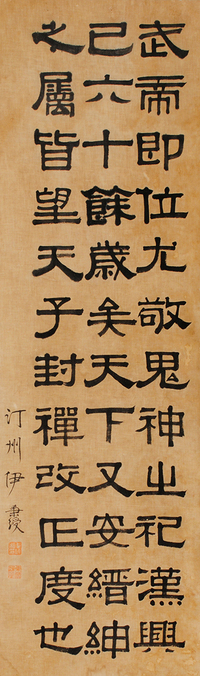 武帝即位尤敬鬼神之祀漢興
已六十餘歲矣天下又安縉紳
之屬皆望天子封禪改正度也
汀州伊秉綬